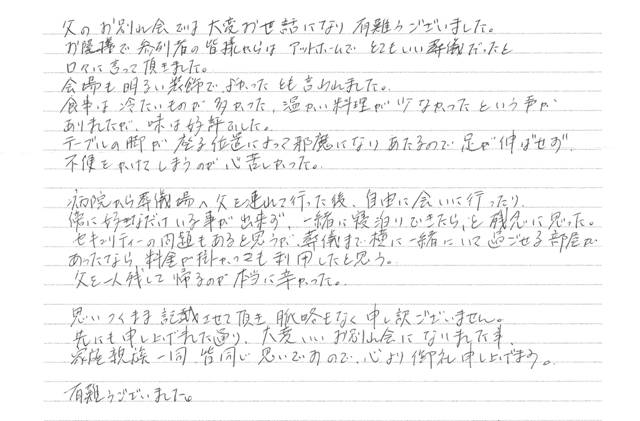 父のお別れ会では大変お世話になり有難うございました。
お陰様で参列者の皆様からはアットホームでとてもいい葬儀だったと
口々に言って頂きました。
会場も明るい装飾でよかったとも言われました。
食事は冷たいものが多かった、温かい料理が少なかったという声が
ありましたが、味は好評でした。
テーブルの脚が座る位置によって邪魔になりあたるので足が伸ばせず、
不便をかけてしまうのが心苦しかった。
病院から葬儀場へ父を連れて行った後、自由に会いに行ったり、
傍に好きなだけいる事が出来ず、一緒に寝泊りできたら、と残念に思った。
セキュリティーの問題もあると思うが、葬儀まで棺に一緒にいて過ごせる部屋が
あったなら、料金が掛かっても利用したと思う。
父を一人残して帰るのが本当に辛かった。
思いつくまま記載させて頂き、脈略もなく申し訳ございません。
先にも申し上げました通り、大変いいお別れ会になりました事、
家族親族一同 皆同じ思いですので、心より御礼申し上げます。
有難うございました。